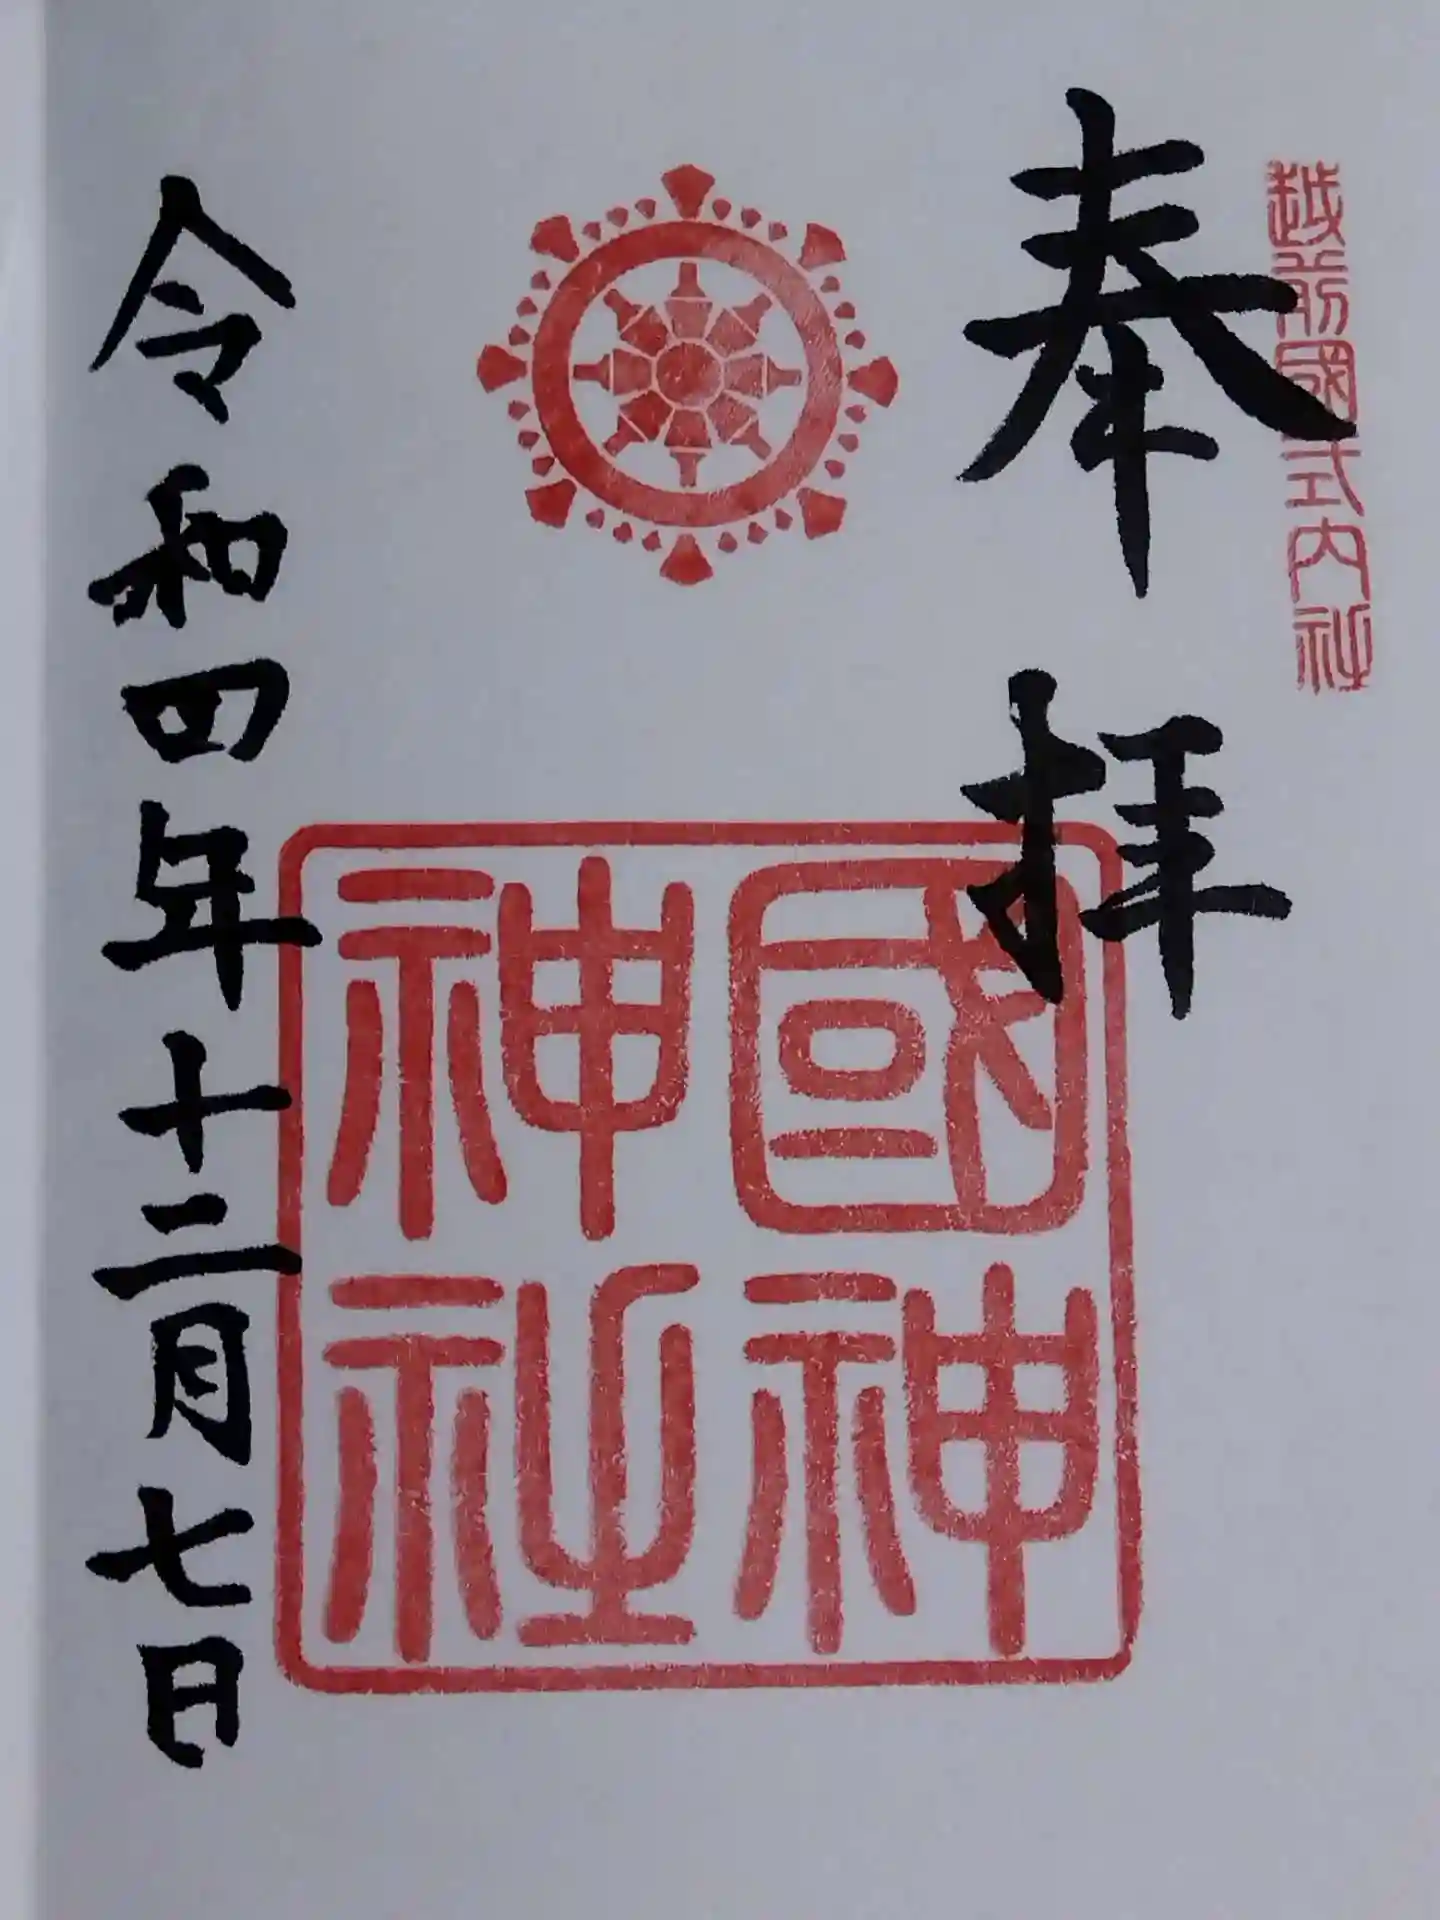 越前國式内社
奉拝
國神
神社
令和四年十二月七日